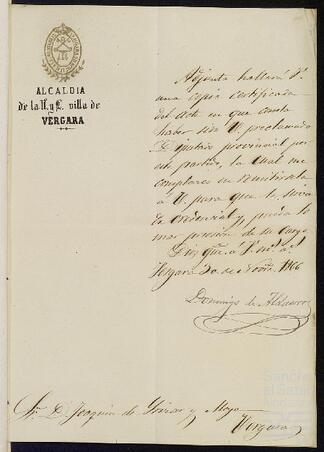 ALCALDIA
de la N. y L. villa de
VERGARA
Adjunta hallará V.
una copia certificada
del acta en que consta
haber sido V. proclamado
Diputado provincial por
este partido, la cual me
complazco en remitirsela
á V. para que le sirva
de credencial y pueda to
mar posesion de su cargo
Dios gue. á V. ms. as.
Vergara 30 de 1866
Domingo de
Sr. D. Joaquin de Yrizar y Moya
Vergara